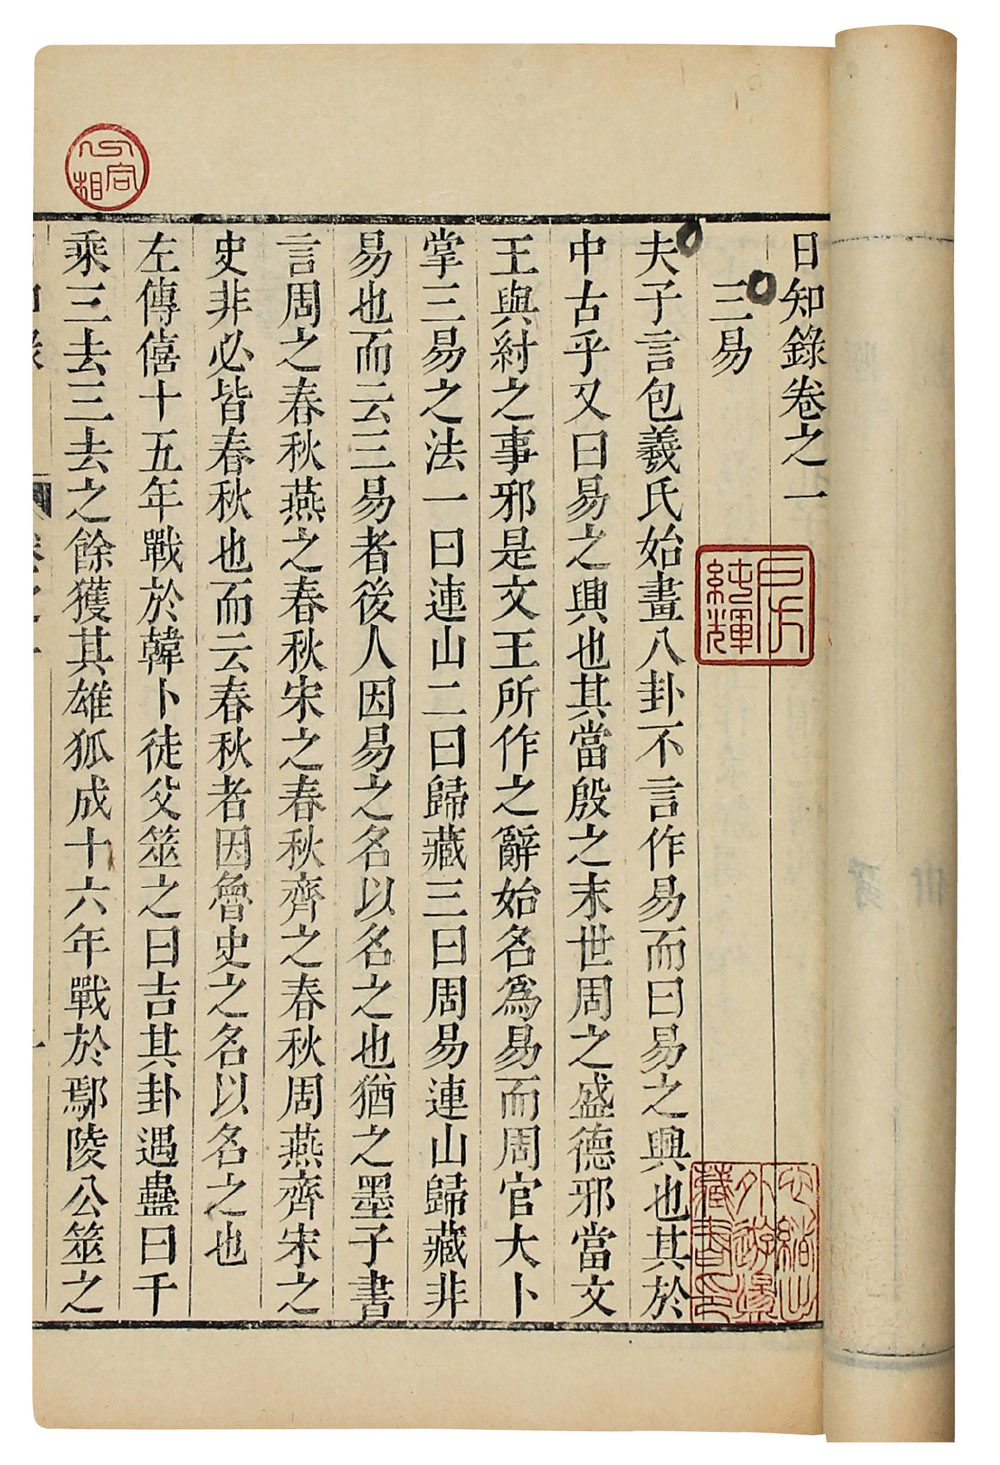 日知錄卷之一
三易
夫子言包羲氏始畫八卦不言作易而曰易之興也其於
中古乎又曰易之興也其當殷之末世周之盛德邪當文
王與紂之事邪是文王所作之辭始名為易而周官大卜
掌三易之法一曰連山二曰歸藏三曰周易連山歸藏非
易也而云三易者後人因易之名以名之也猶之墨子書
言周之春秋燕之春秋宋之春秋齊之春秋周燕齊宋之
史非必皆春秋也而云春秋者因魯史之名以名之也
左傳僖十五年戰於韓卜徒父筮之曰吉其卦遇蠱曰千
乘三去三去之餘獲其雄狐成十六年戰於鄢陵公筮之